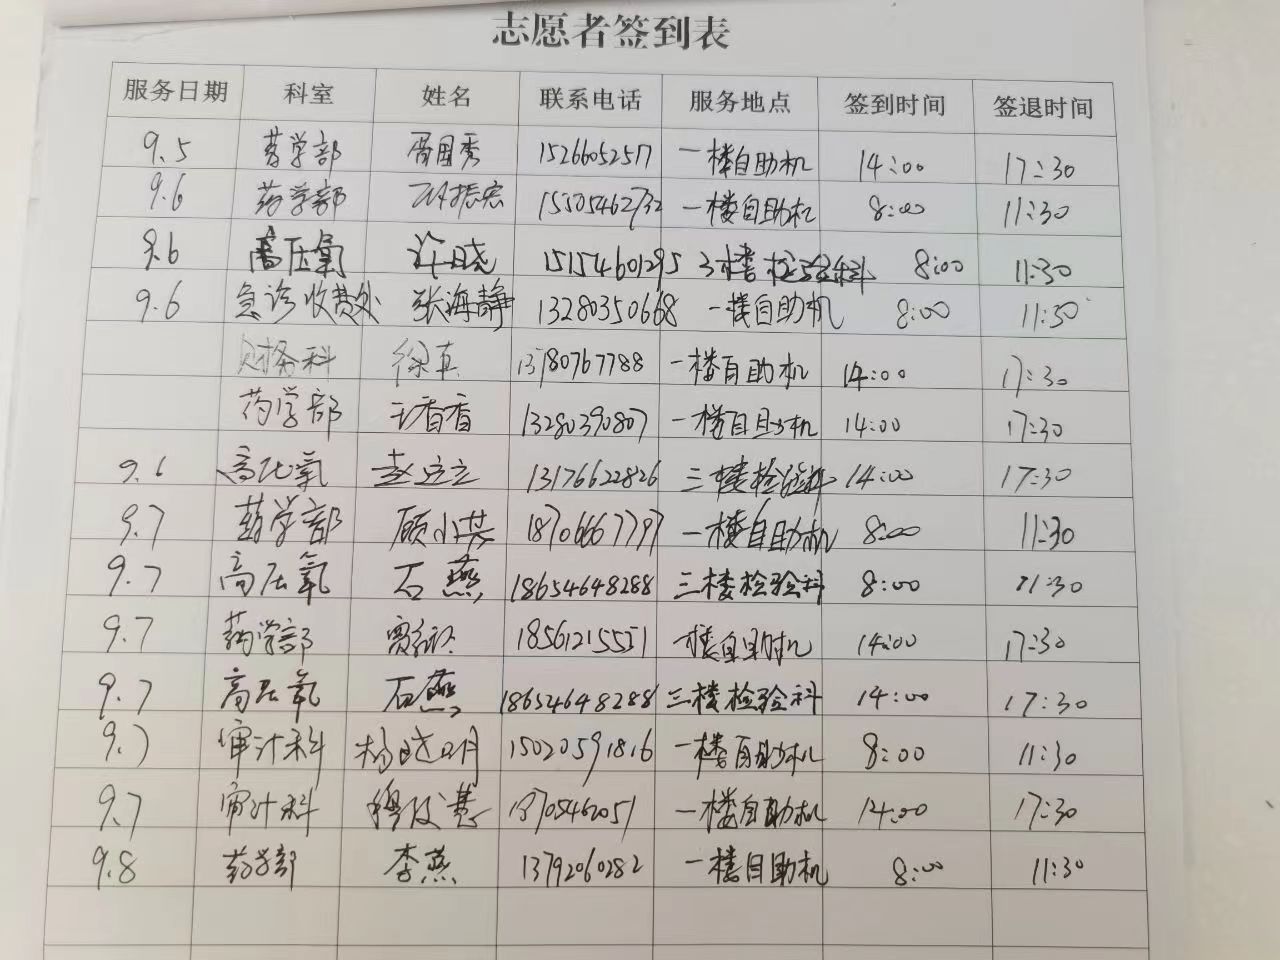 志愿者签到表
服务日期 科室 姓名 联系电话 服务地点 签到时间 签退时间
9.5 药学部 周国秀 15266052517 一楼自助机 14:00 17:30
9.6 药学部 振宏 15505462732 一楼自助机 8:00 11:30
9.6 高压氧 许晓 15154601295 3楼检验科 8:00 11:30
9.6 急诊收费处 张海静 13280350668 一楼自助机 8:00 11:30
财务科 徐真 13780767788 一楼自助机 14:00 17:30
药学部 王香香 13280390807 一楼自助机 14:00 17:30
9.6 高压氧 赵 13176622826 三楼检验科 14:00 17:30
9.7 药学部 顾小芸 18706667797 一楼自助机 8:00 11:30
9.7 高压氧 石燕 18654648288 三楼检验科 8:00 11:30
9.7 药学部 18561215551 一楼自助机 14:00 17:30
9.7 高压氧 石燕 18654648288 三楼检验科 14:00 17:30
9.7 审计科 杨晓明 15020591816 一楼自助机 8:00 11:30
9.7 审计科 一楼自助机 14:00 17:30
9.8 药学部 李燕 13792060282 一楼自助机 8:00 11:30